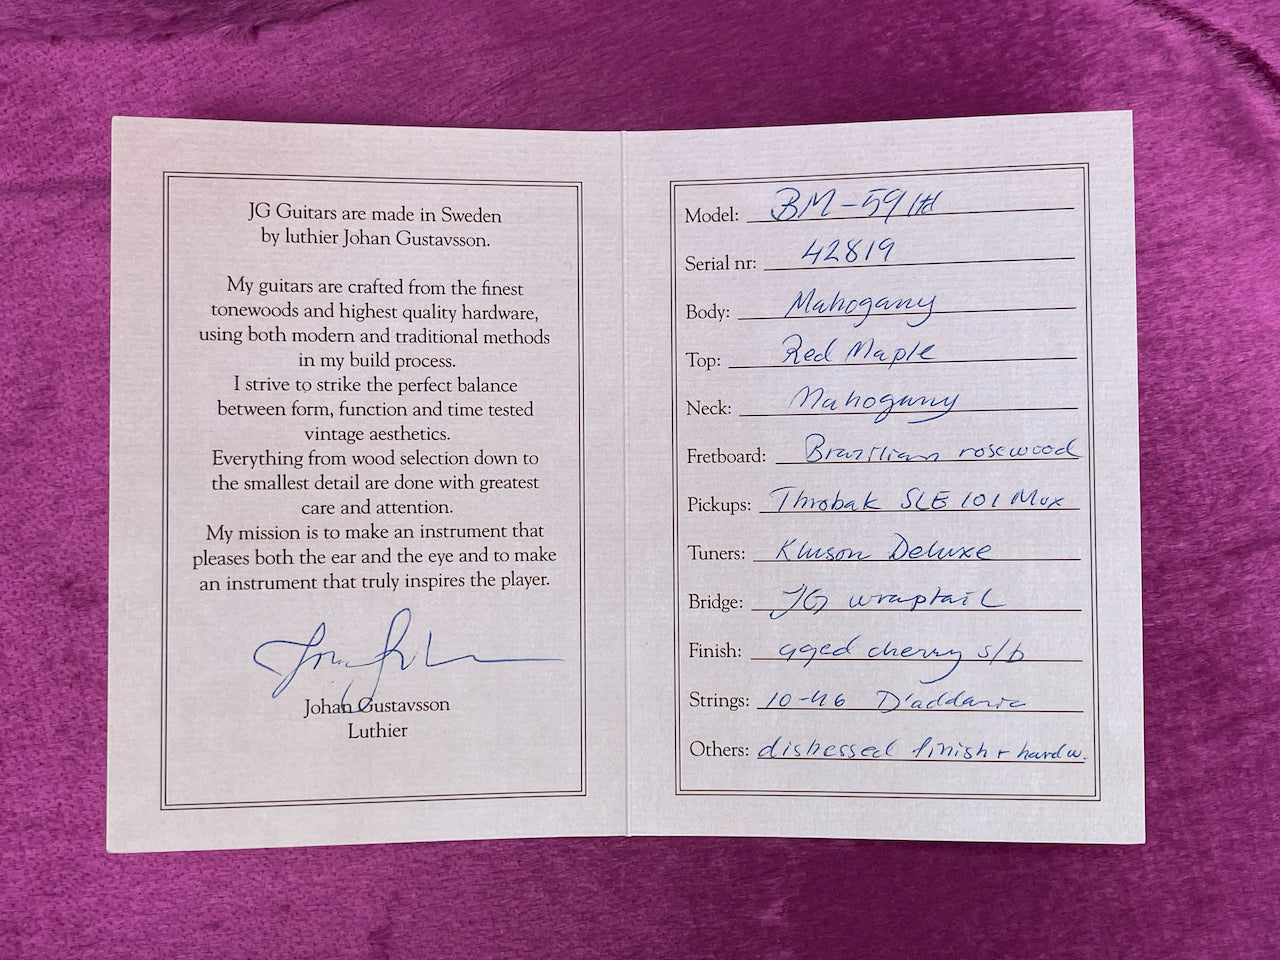 JG Guitars are made in Sweden
by luthier Johan Gustavsson.
My guitars are crafted from the finest
tonewoods and highest quality hardware,
using both modern and traditional methods
in my build process.
I strive to strike the perfect balance
between form, function and time tested
vintage aesthetics.
Everything from wood selection down to
the smallest detail are done with greatest
care and attention.
My mission is to make an instrument that
pleases both the ear and the eye and to make
an instrument that truly inspires the player.
Johan Gustavsson
Luthier
Model: BM-59 ltd
Serial nr: 42819
Body: Mahogany
Top: Red Maple
Neck: Mahogany
Fretboard: Brazilian rosewood
Pickups: Throbak SLE 101 Mxx
Tuners: Kluson Deluxe
Bridge: JG wraptail
Finish: aged cherry s/b
Strings: 10-46 D'addario
Others: distressed finish + hardw.